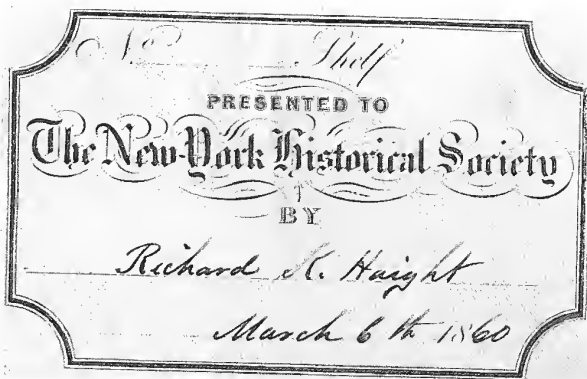 No. Shelf
PRESENTED TO
The New-York Historical Society
BY
Richard K. Haight
March 6th 1860